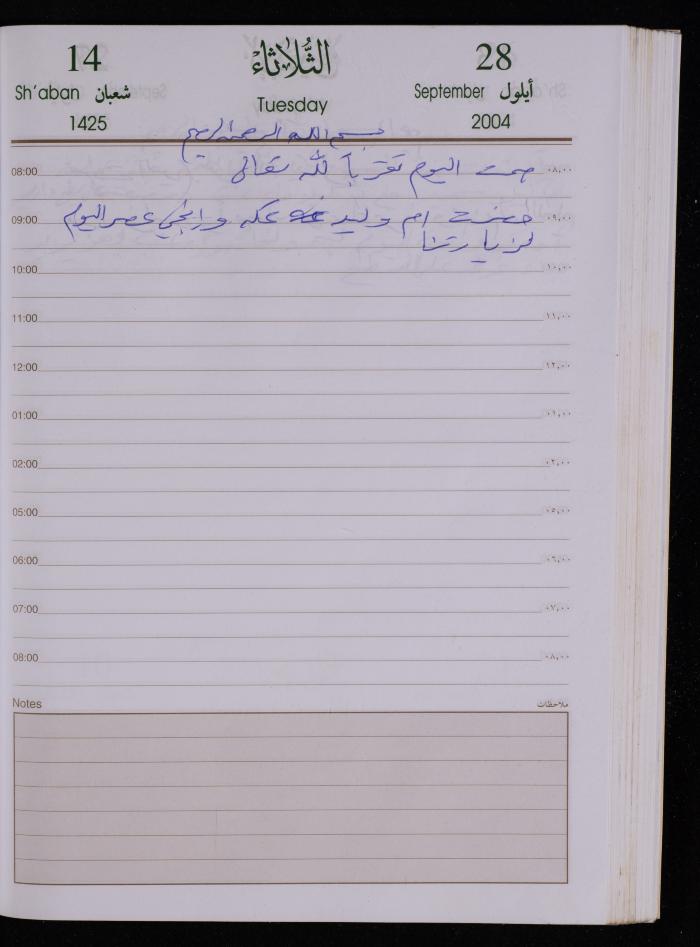 14 الثُّلاثاء 28
Sh'aban شعبان Tuesday September أيلول
1425 2004
بسم الله الرحمن الرحيم
08:00 صمت اليوم تقرباً لله تعالى ٠٨,٠٠
09:00 حضرت ام وليد عكه و عصر اليوم ٠٩,٠٠
لزيارتنا
10:00 ١٠,٠٠
11:00 ١١,٠٠
12:00 ١٢,٠٠
01:00 ٠١,٠٠
02:00 ٠٢,٠٠
05:00 ٠٥,٠٠
06:00 ٠٦,٠٠
07:00 ٠٧,٠٠
08:00 ٠٨,٠٠
Notes ملاحظات